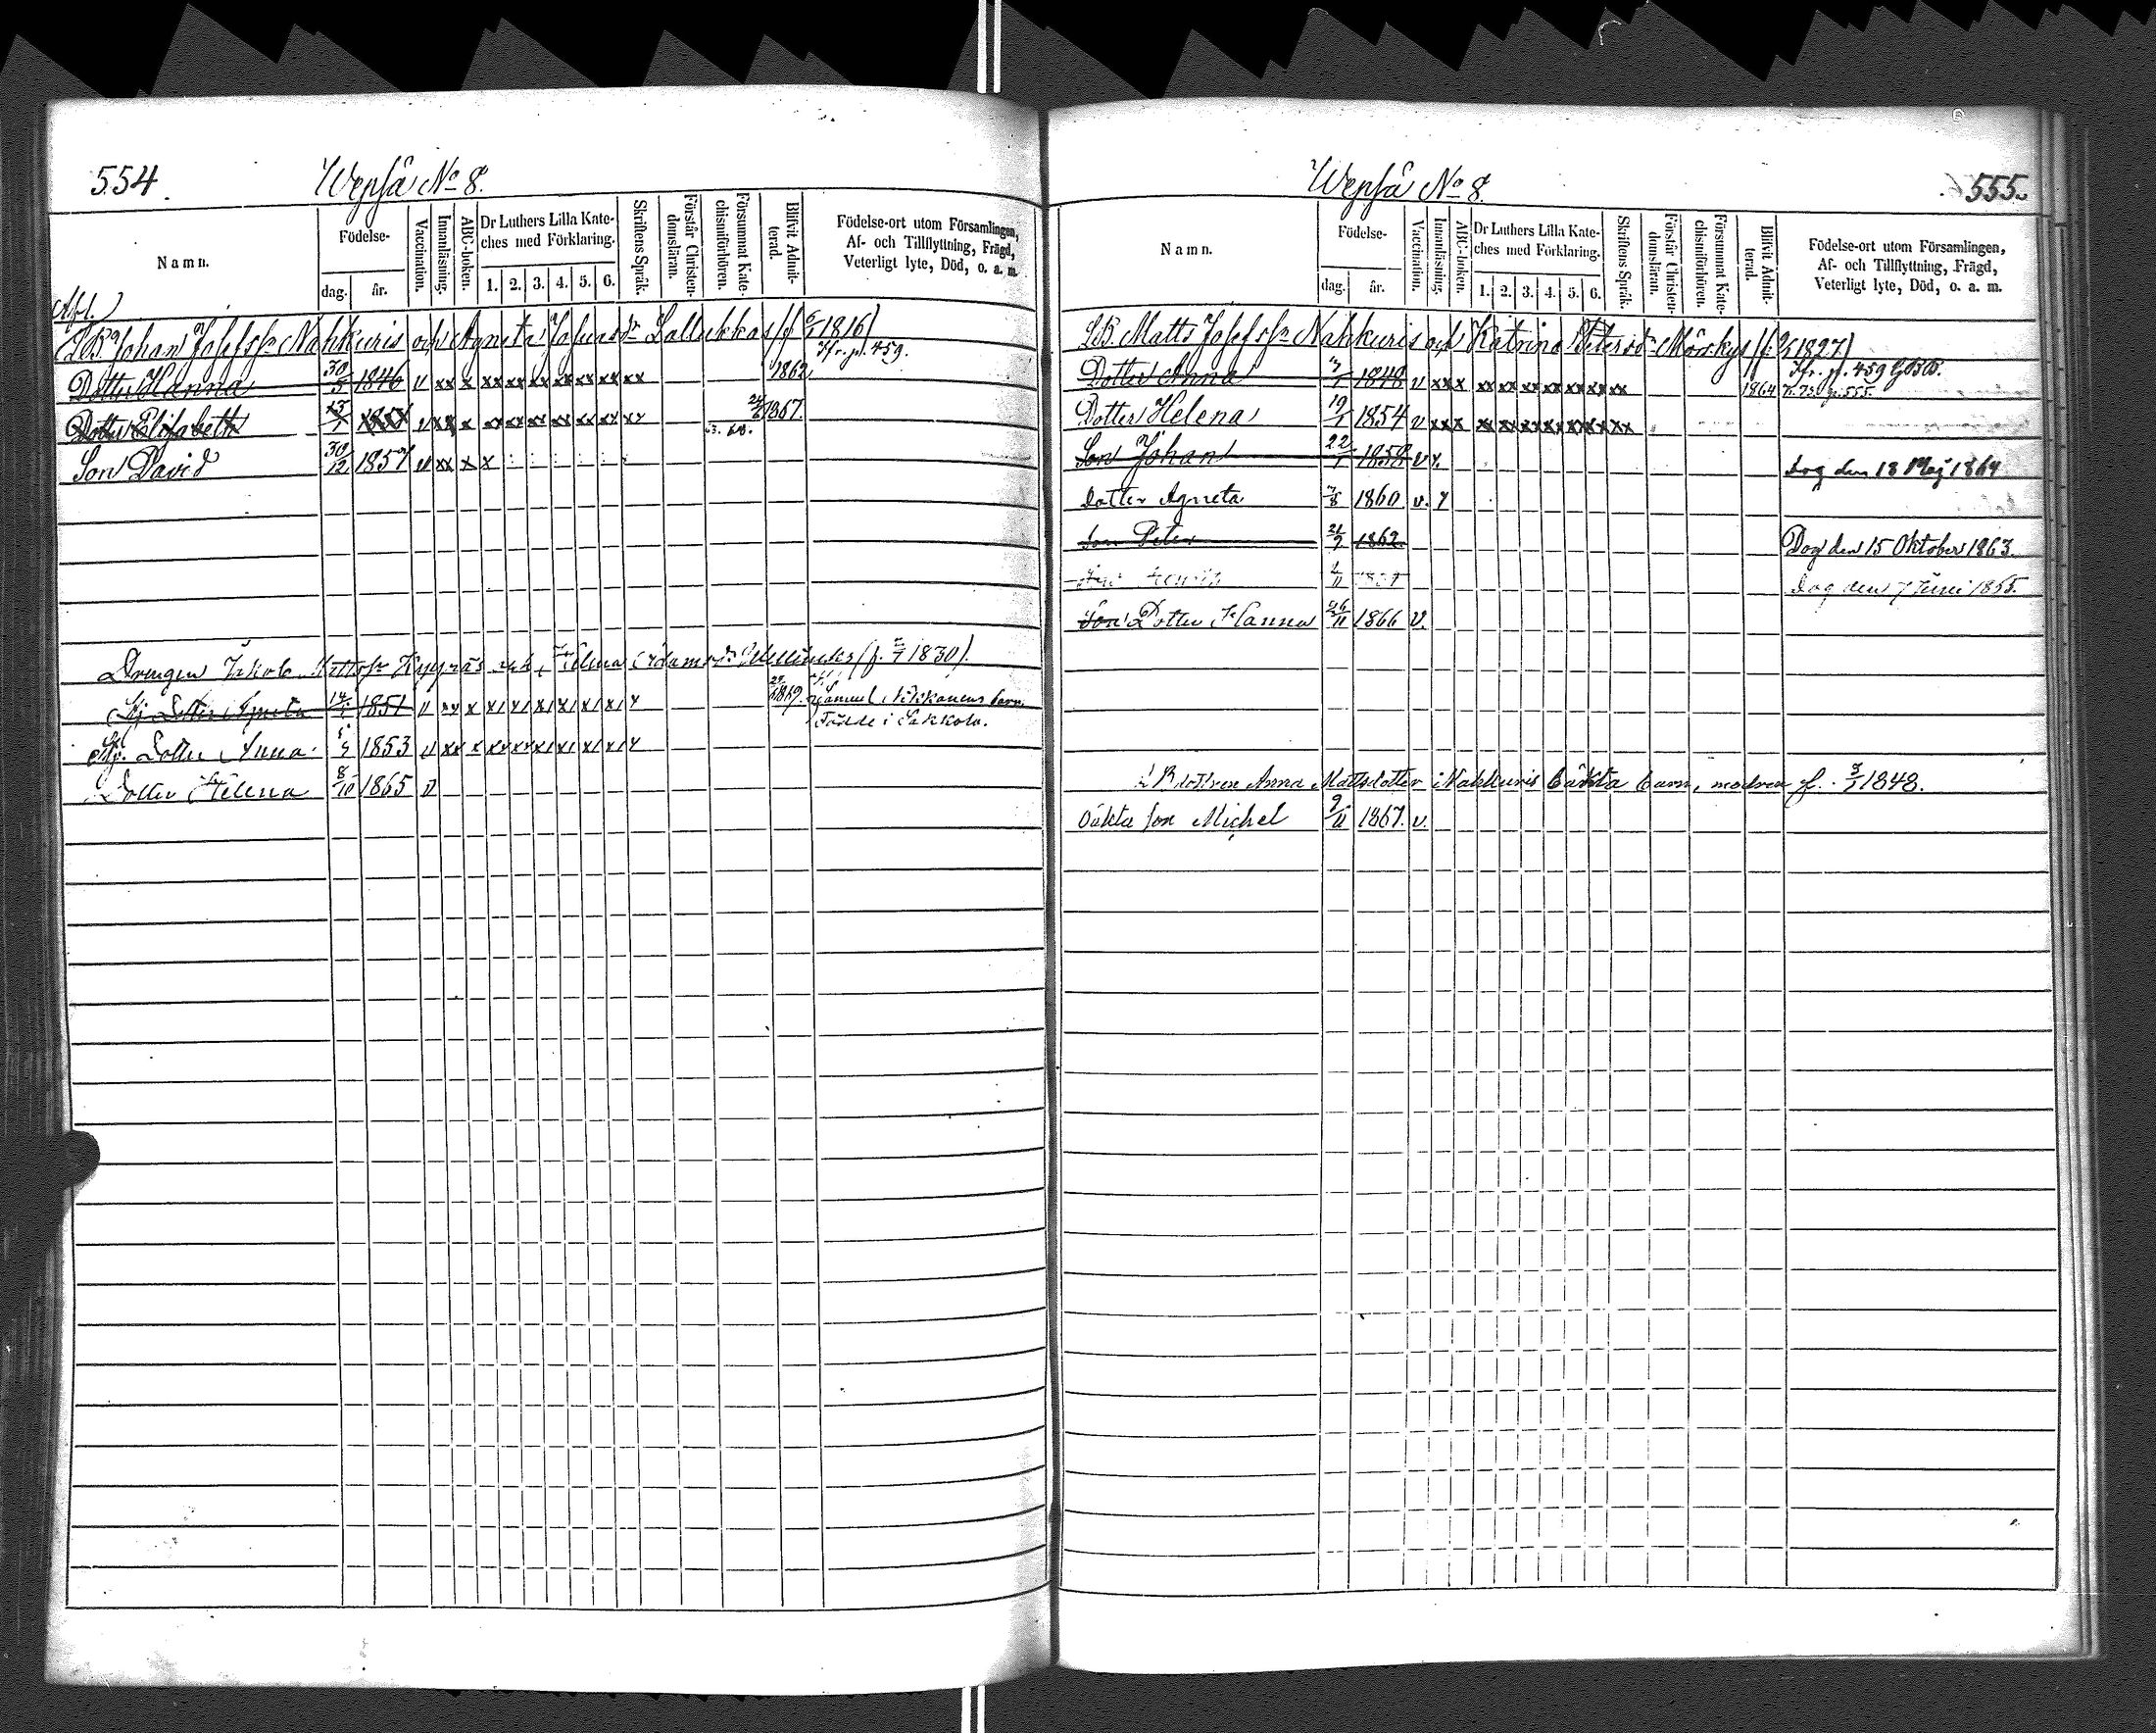 554.
Wepsä No 8.
Namn.
Födelse-
dag.
år.
Vaccination.
Innanläsning.
ABC-boken.
Dr Luthers Lilla Kate-
ches med Förklaring.
1. 2. 3. 4. 5. 6.
Skriftens Språk.
Förstår Christen-
domsläran.
Försummat Kate-
chismiförhören.
Blifvit Admit-
terad.
Födelse-ort utom Församlingen,
Af- och Tillflyttning, Frägd,
Veterligt lyte, Död, o. a. m.
Afl.
LB. Johan Josefss Nahkuris och Agneta Johansdr Lallukkas (f 1816)
Jfr. p. 459.
Dotter Hanna 30/5 1846 v xx x xx xx xx xx xx xx xx 1862
Dotter Elisabeth v xx x xx xx xx xx xx xx xx 1867.
Son David 30/12 1857 v xx x x
Drengen Jakob och Helena Adamsdr (f. 1830).
Dotter Agneta 1851 v xx x x/ x/ x/ x/ x/ x/ x 1869. Samuel Kekkonens barn.
Födde i Sakkola.
Dotter Anna 1853 v xx x xx xx x/ x/ x/ x/ x
Dotter Helena 8/10 1865 v
Wepsä No 8.
555.
Namn.
Födelse-
dag.
år.
Vaccination.
Innanläsning.
ABC-boken.
Dr Luthers Lilla Kate-
ches med Förklaring.
1. 2. 3. 4. 5. 6.
Skriftens Språk.
Förstår Christen-
domsläran.
Försummat Kate-
chismiförhören.
Blifvit Admit-
terad.
Födelse-ort utom Församlingen,
Af- och Tillflyttning, Frägd,
Veterligt lyte, Död, o. a. m.
LB. Matts Josefss Nahkuris och Katrina Petersdr Mörskys (f. 1827)
Jfr. p. 459
Dotter Anna 3/1 1848 v xx x xx xx xx xx xx xx xx 1864 p. 555.
Dotter Helena 19/1 1854 v xx x xx xx xx xx xx xx xx
Son Johan 22/1 1858 v x. dog den 18 Maj 1864
Dotter Agneta 7/8 1860 v. x
Son Peter 21/9 1862 Dog den 15 Oktober 1863.
Son Henrik 2/11 dog den 7 Juni 1865.
Son Dotter Hanna 26/11 1866 v.
LB dottren Anna Mattsdotter Nahkuris oäkta barn, modren f. 3/1 1848.
Oäkta son Michel 9/11 1867. v.